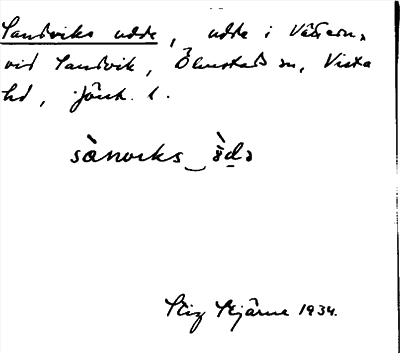 Sandviks udde, udde i Vättern,
vid Sandvik, Ölmstads sn, Vista
hd, Jönk. l.
sànvıks‿
Stig Stjärne 1934.